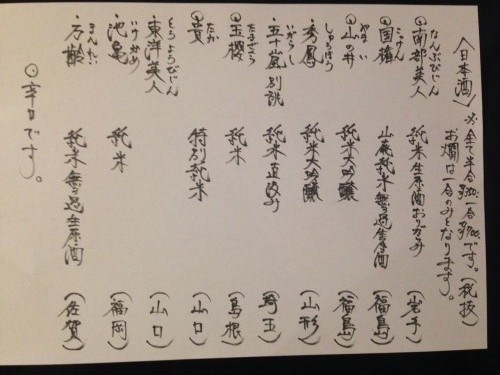 〈日本酒〉 ※全て半合 一合 です。(税抜)
お燗は一合のみとなります。
なんぶびじん
◎南部美人 純米生原酒おりがらみ (岩手)
こっけん
◎国権 山廃純米無濾過生原酒 (福島)
やまのい
◎山の井 純米大吟醸 (福島)
しゅうほう
・秀鳳 純米大吟醸 (山形)
いがらし
・五十嵐 別誂 純米直汲み (埼玉)
たまざくら
・玉櫻 純米 (島根)
たか
◎貴 特別純米 (山口)
とうようびじん
東洋美人 (山口)
いけかめ
・池亀 純米 (福岡)
まんれい
・万齢 純米無濾過生原酒 (佐賀)
◎辛口です。